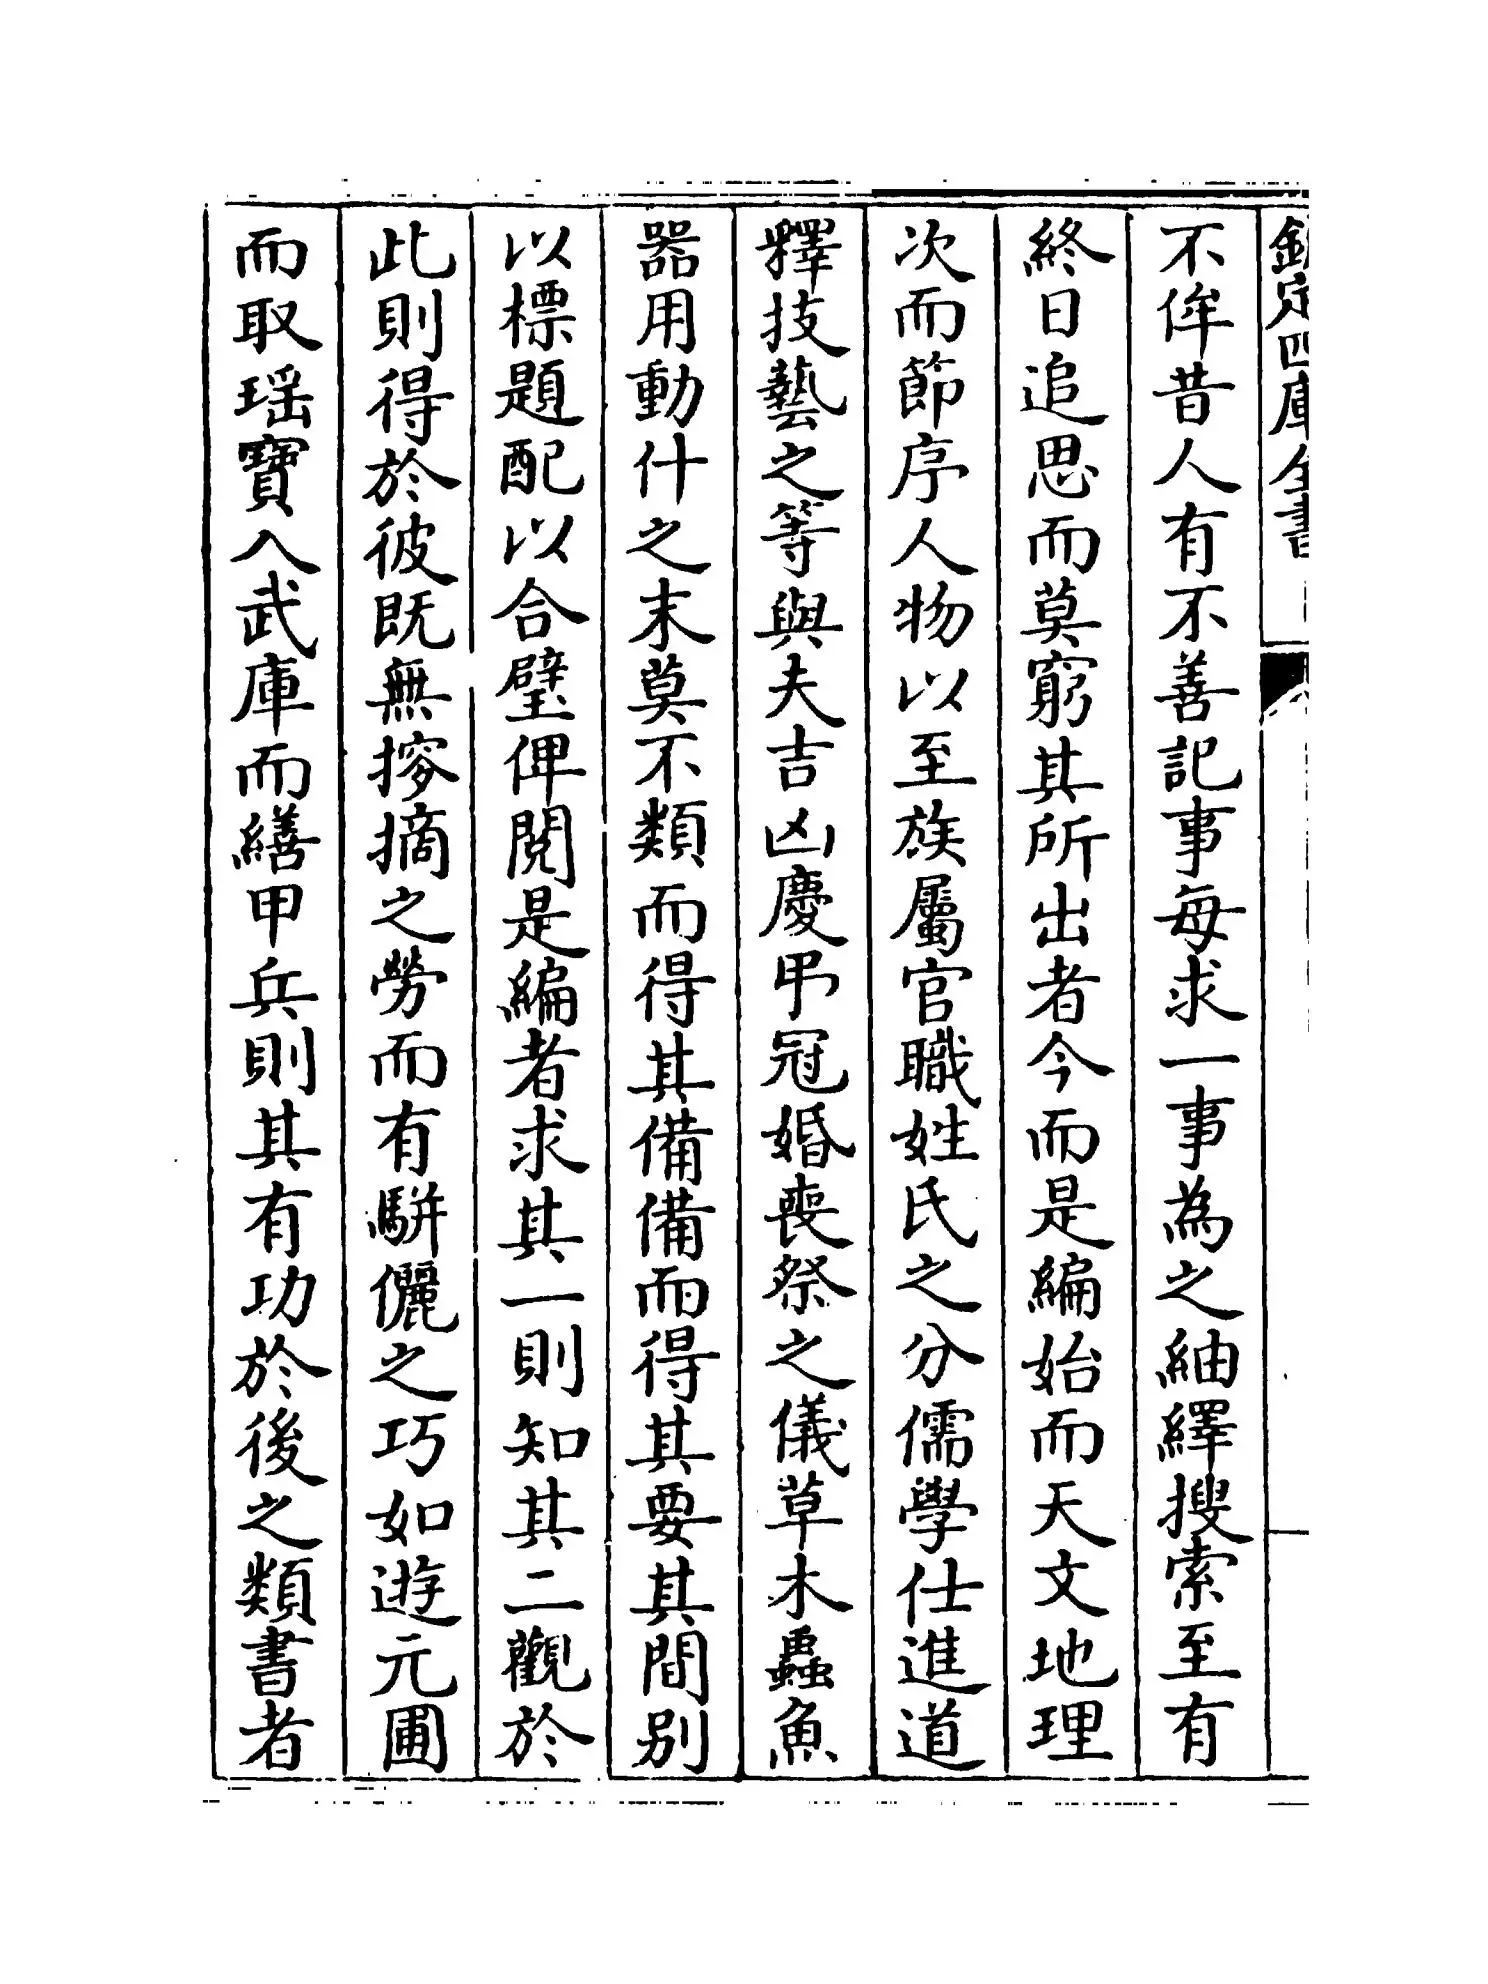 欽定四庫全書
不侔昔人有不善記事每求一事為之紬繹搜索至有
終日追思而莫窮其所出者今而是編始而天文地理
次而節序人物以至族屬官職姓氏之分儒學仕進道
釋技藝之等與夫吉凶慶弔冠婚喪祭之儀草木蟲魚
器用動什之末莫不類而得其備備而得其要其間别
以標題配以合璧俾閱是編者求其一則知其二觀於
此則得於彼既無摉摘之勞而有駢儷之巧如遊元圃
而取瑶寶入武庫而繕甲兵則其有功於後之類書者